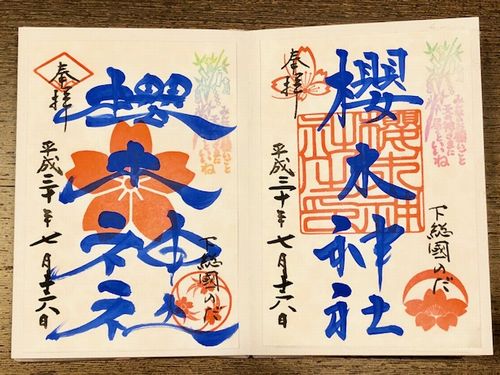 奉拝
櫻木神社
下総國のだ
平成三十年七月二十六日
櫻木神社之印
奉拝
櫻木神社
下総國のだ
平成三十年七月二十六日